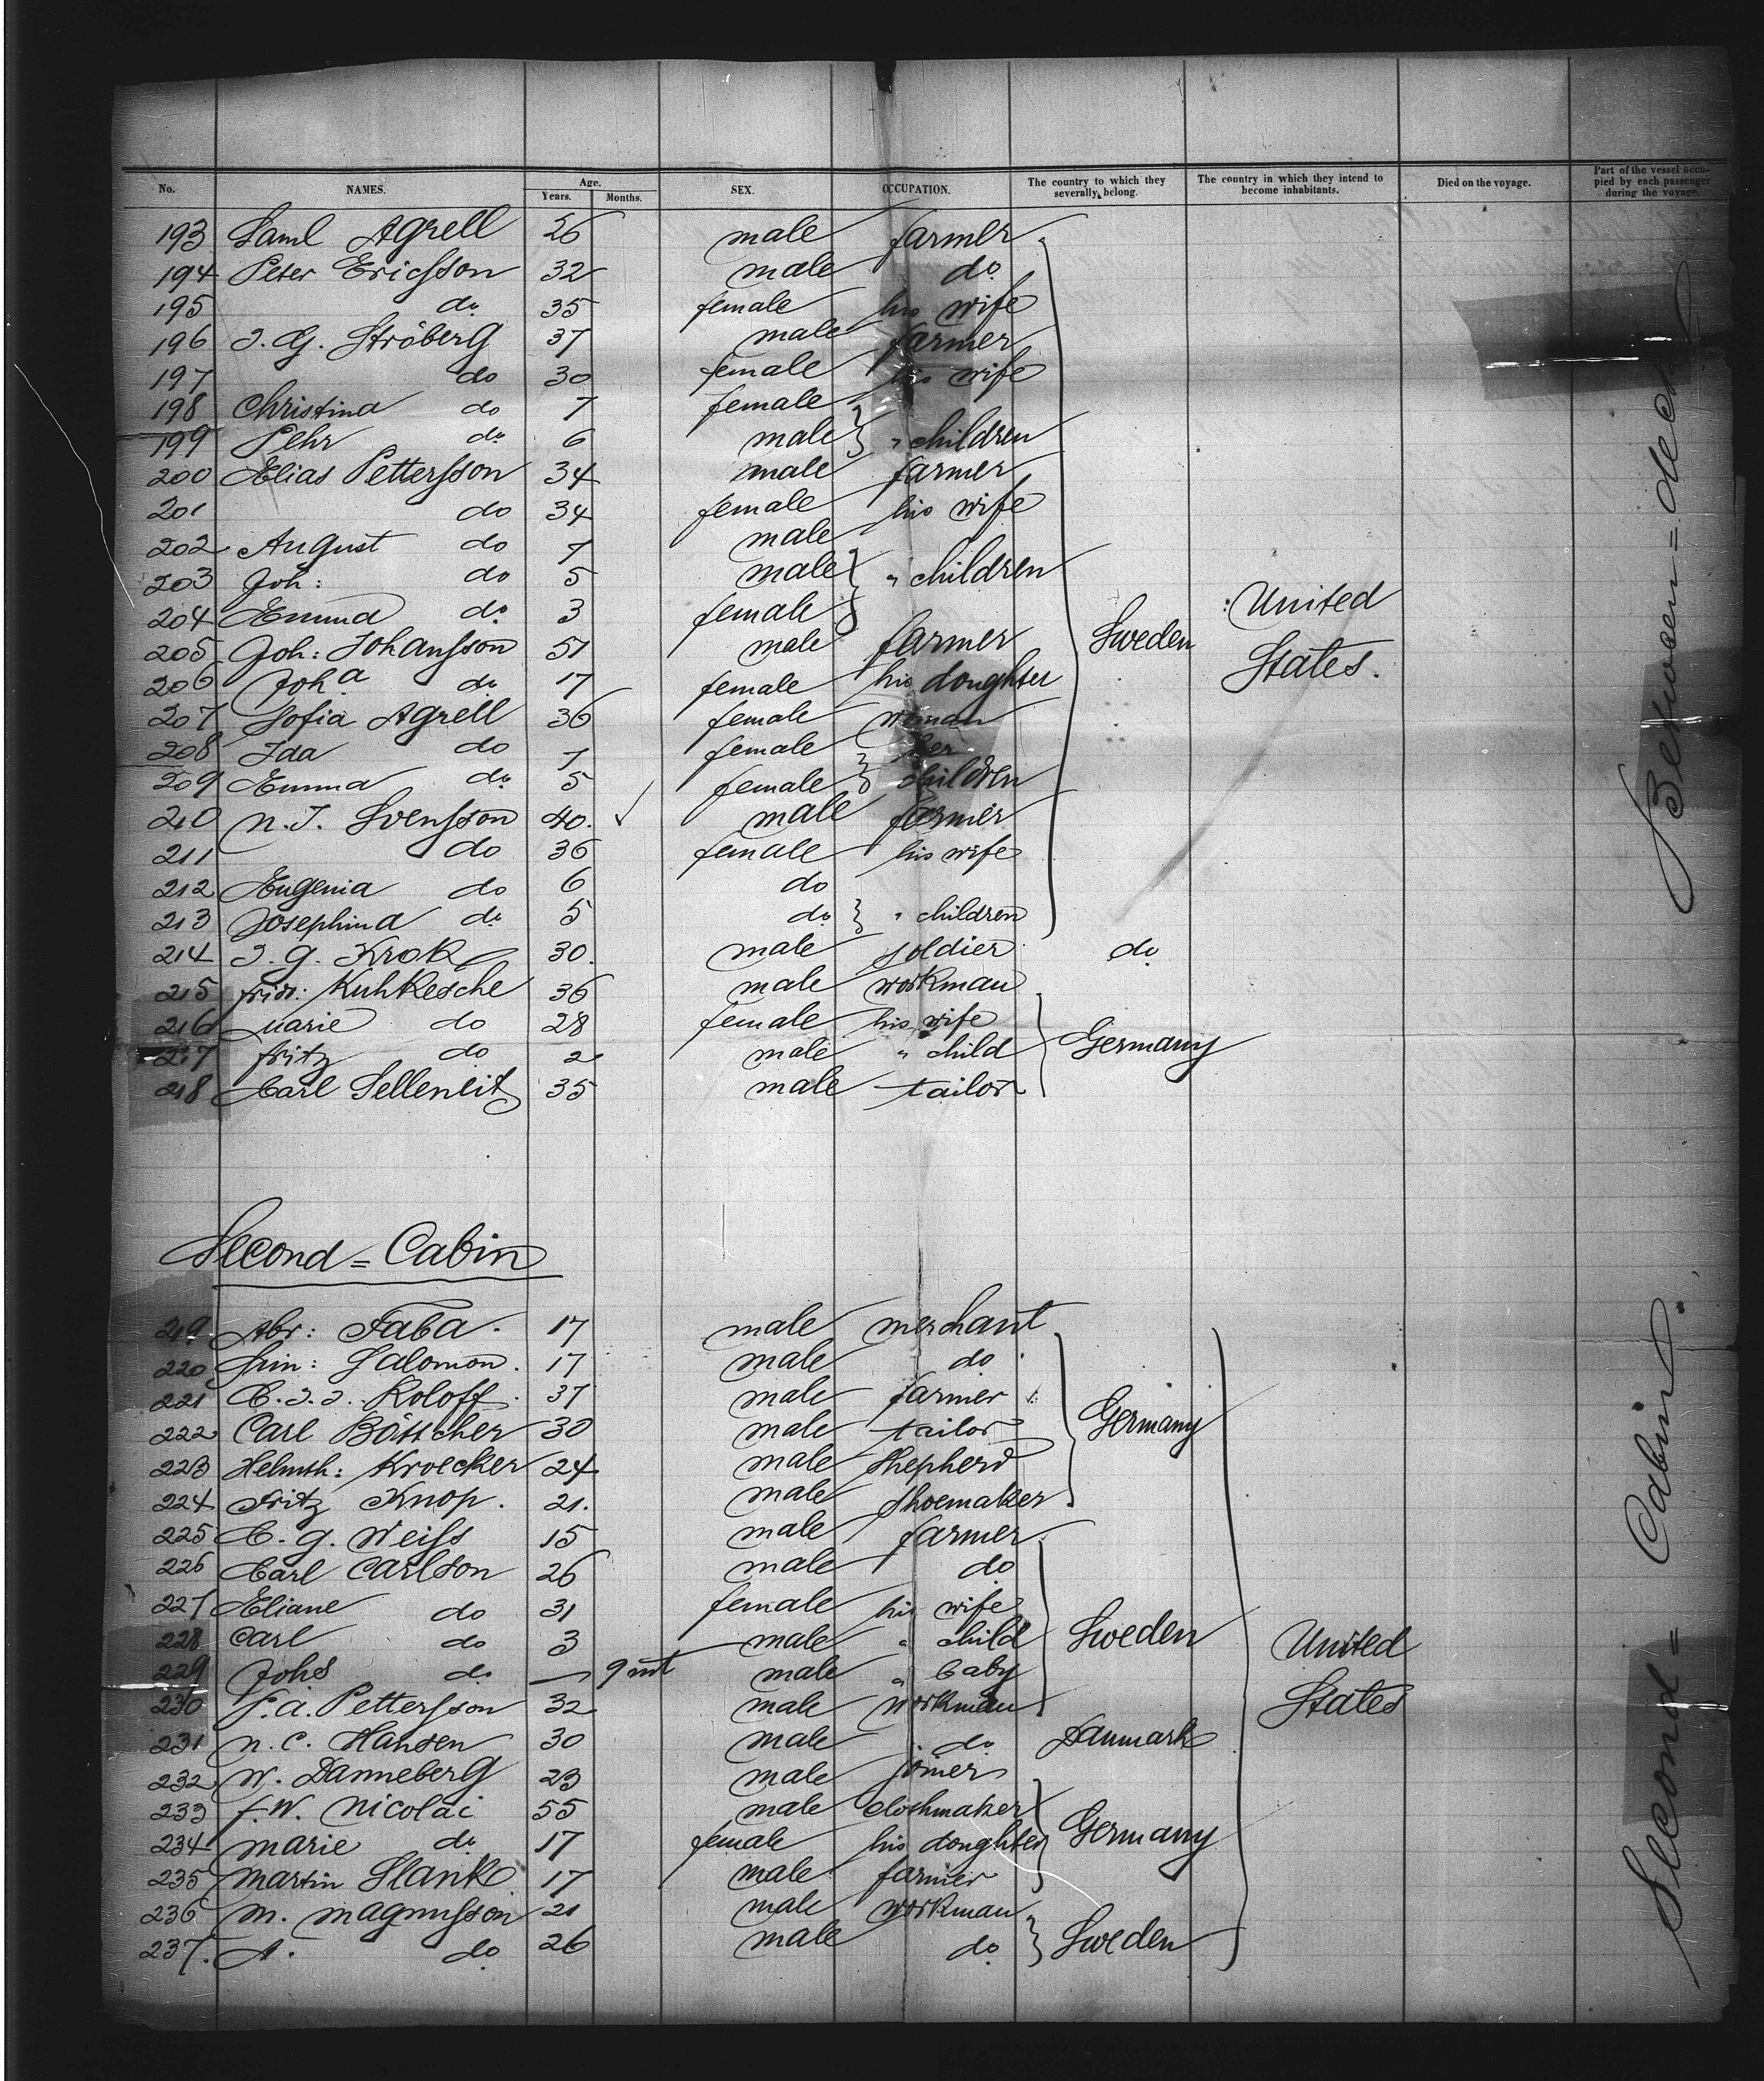 No. NAMES. Age. Years. Months. SEX. OCCUPATION. The country to which they severally belong. The country in which they intend to become inhabitants. Died on the voyage. Part of the vessel occupied by each passenger during the voyage.
193 Saml Agrell 26 male farmer
194 Peter Ericsson 32 male do
195 do 35 female his wife
196 J. G. Ströberg 37 male farmer
197 do 30 female his wife
198 Christina do 7 female
199 Pehr do 6 male " children
200 Elias Pettersson 34 male farmer
201 do 34 female his wife
202 August do 7 male
203 Joh: do 5 male " children
204 Emma do 3 female
205 Joh: Johansson 51 male farmer Sweden United States.
206 Joha do 17 female his doughter
207 Sofia Agrell 36 female woman
208 Ida do 7 female her
209 Emma do 5 female children
210 N. J. Svensson 40. male farmer
211 do 36 female his wife
212 Eugenia do 6 do
213 Josephina do 5 do " children
214 J. G. Krok 30. male soldier do
215 fridr: Kuhkesche 36 male workman
216 Marie do 28 female his wife
217 fritz do 2 male " child Germany
218 Carl Sellenlit 35 male tailor
Between=deck
Second=Cabin
219 Abr: Faba. 17 male merchant
220 Salomon. 17 male do
221 C. J. J. Koloff. 37 male farmer
222 Carl Böttscher 30 male tailor Germany
223 Helmth: Kroecker 24 male Shepherd
224 Fritz Knop. 21. male Shoemaker
225 C. G. Weiss 15 male farmer
226 Carl Carlson 26 male do
227 Eliane do 31 female his wife
228 Carl do 3 male " child Sweden United
229 Johs do — 9 mt male " baby
230 P. A. Pettersson 32 male workman States
231 N. C. Hansen 30 male do Danmark
232 W. Danneberg 23 male joiner
233 F. W. Nicolai 55 male clothmaker
234 Marie do 17 female his doughter Germany
235 Martin Slank 17 male farmer
236 M. Magnusson 21 male workman
237. A. do 26 male do Sweden
Second=Cabin.